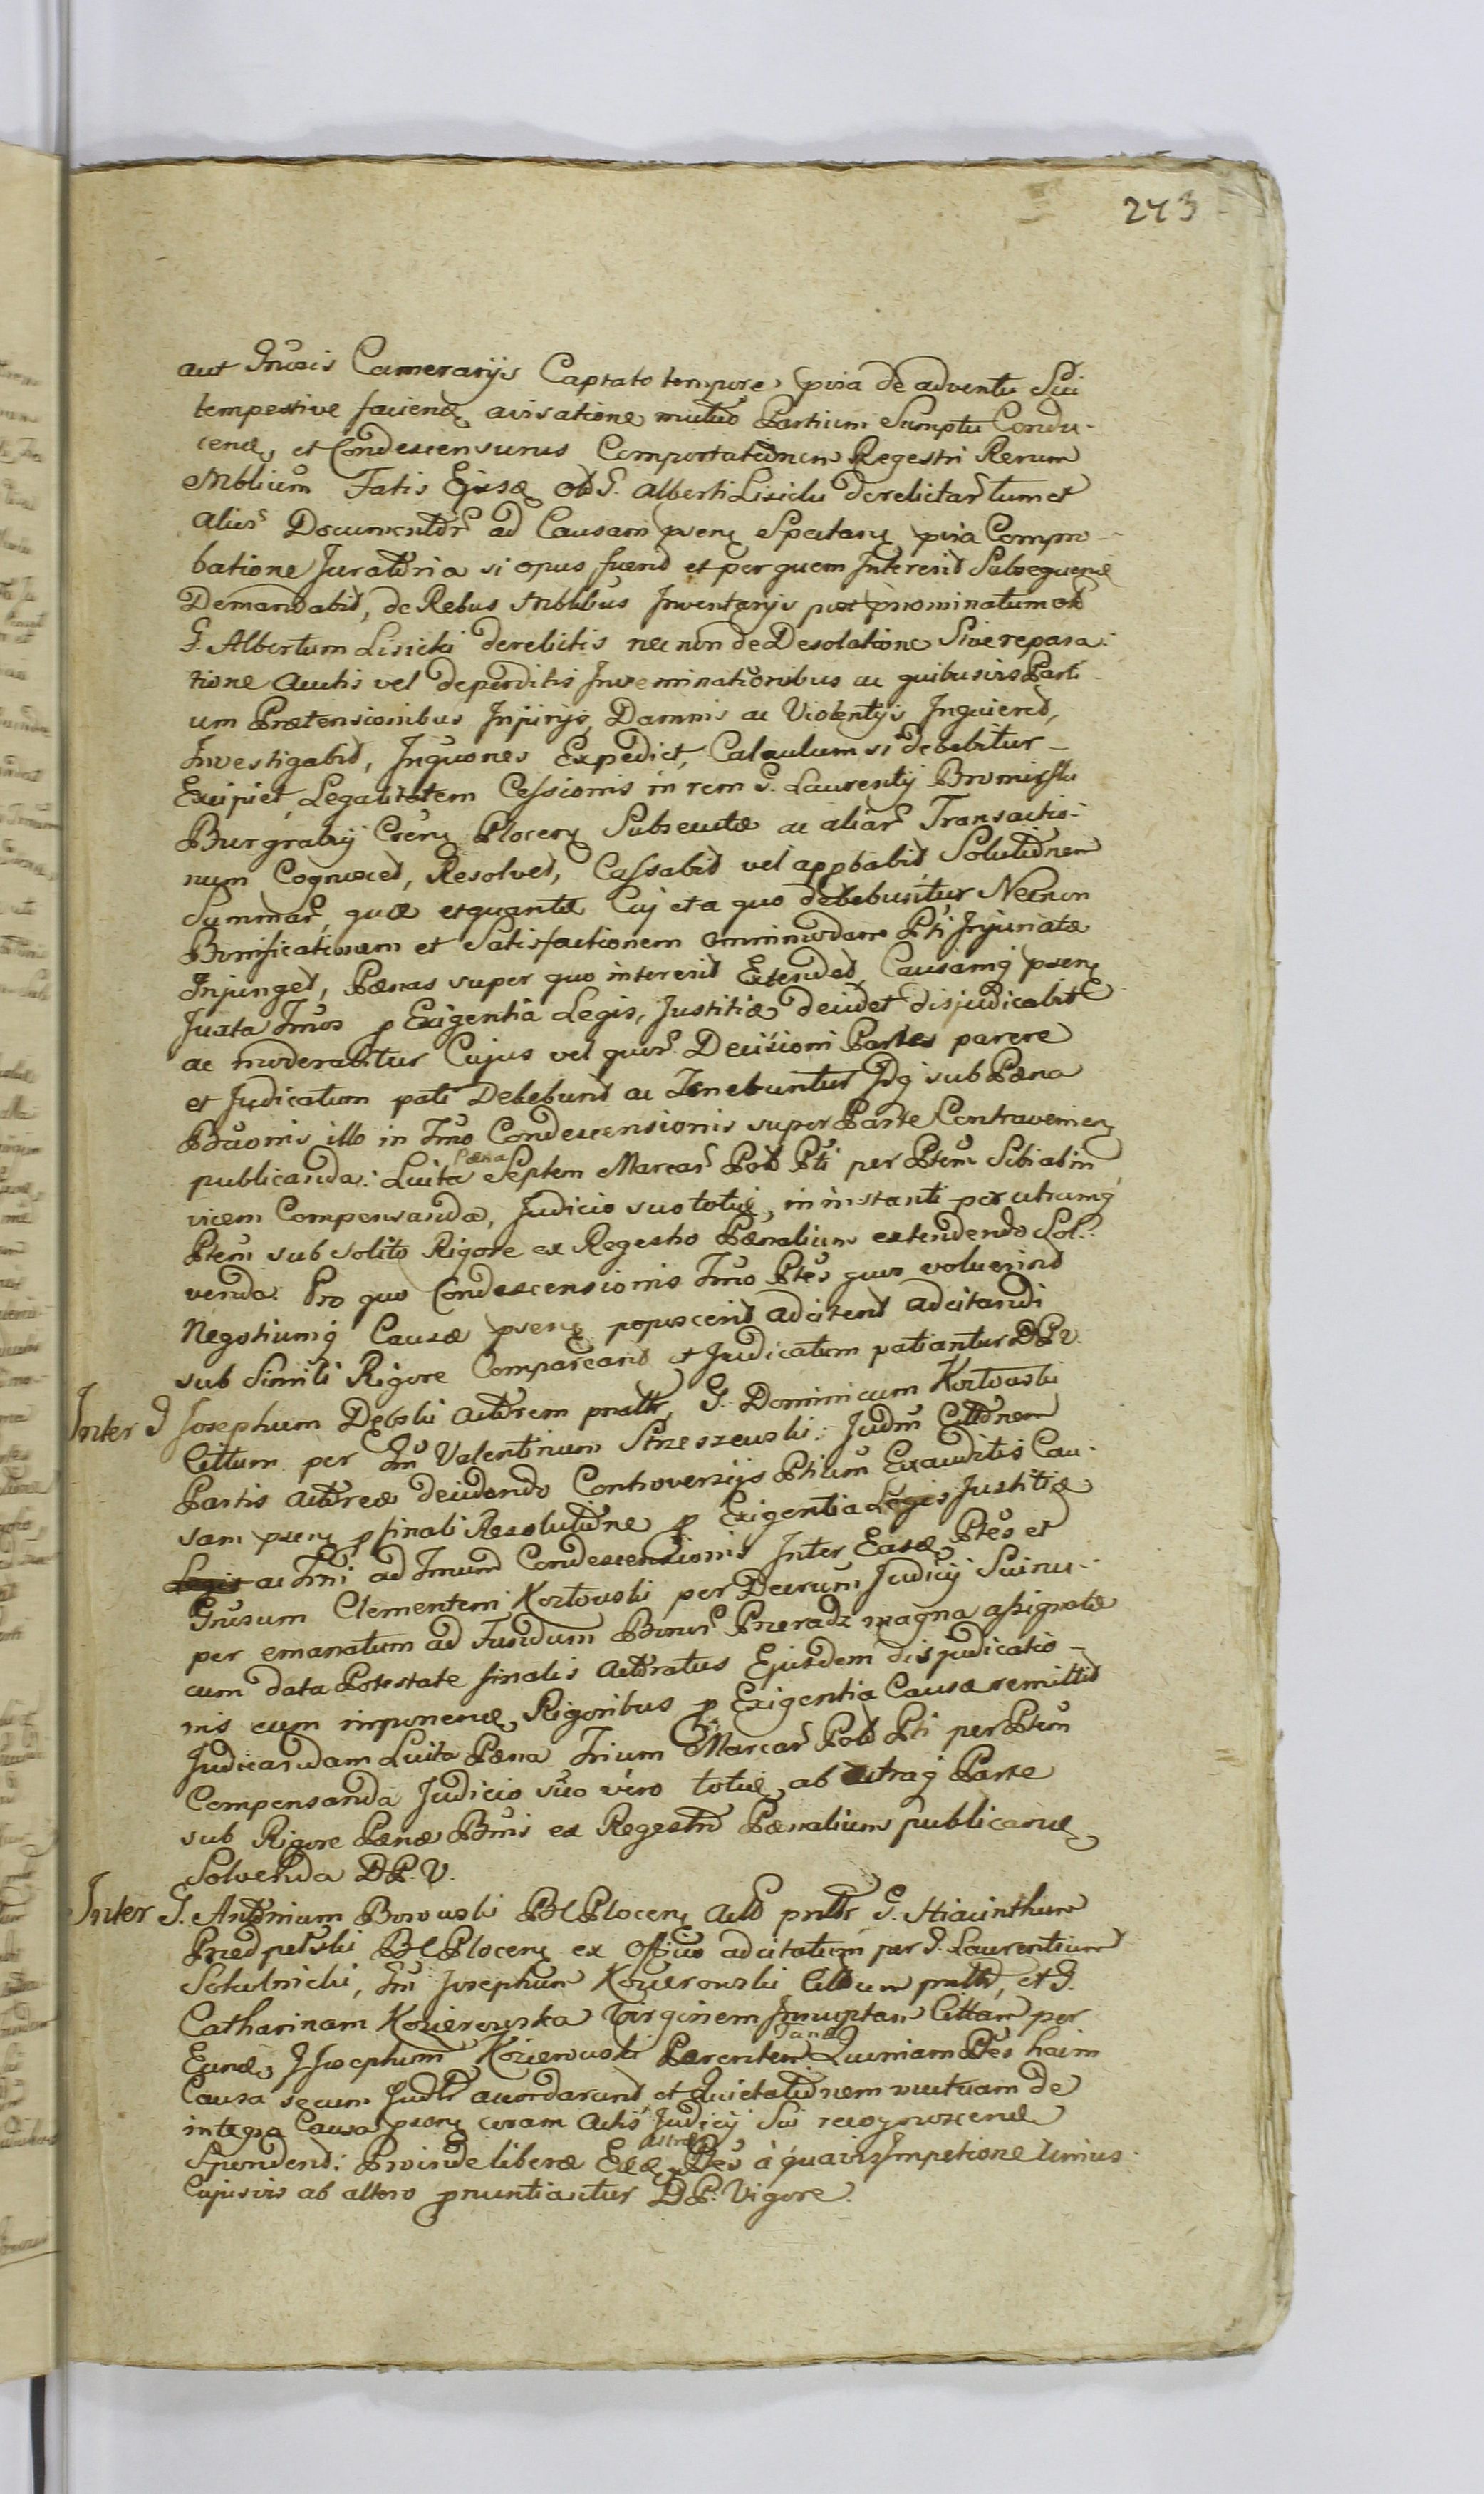 243
aut Gnosis Camerarijs Captato tempore, pvia de adventu Sui
tempestive faciend avisatione mutuo Partium Sumptu Condu-
cend, et Condescensurus Comportationem Regestri Rerum
Mblium Fatis Ejusd olb G. Alberti Lisicki derelictar tum et
aliar Documentor ad Causam psen Spectan pvia Compro-
batione Juratoria si opus fuerit et per quem Intererit Subsequend
Demandabit, de Rebus Mblibus Inventarijs post pnominatum olb
G. Albertum Lisicki derelictis nec non de Desolatione Sive repara-
tione Auctis vel deperditis Inseminationibus ac quibusvis Parti-
um Prætensionibus Injurijs, Damnis ac Violentijs Inquieret,
Investigabit, Inquones Expediet, Calculum si debebitur
Excipiet, Legalitatem Cessionis in rem G. Laurentij Bromirski
Burgrabij Cren Plocen Subsecutæ ac aliar Transactio-
num Cognoscet, Resolvet, Cassabit vel appbabit, Solutionem
Summar, quæ et quantæ Cuj et a quo debebuntur Necnon
Bonificationem et Satisfactionem omnimodam Pti Injuriatæ
Injunget, Pœnas super quo intererit Extendet, Causamq psen
Juxta Imos p Exigentia Legis, Justitiæ decidet disjudicabit
ac moderabitur Cujus vel quor Decisioni Partes parere
et Judicatum pati Debebunt ac Tenebuntur Idq sub Pœna
Bãonis illo in Tmo Condescensionis super Parte Contravenien
publicanda: Luita Pœna Septem Marcar Pol Pti per Ptem Sibi ab in
vicem Compensanda, Judicio suo totie, in instanti per utramq
Ptem sub solito Rigore ex Regestro Pœnalium extendendo Sol-
venda. Pro quo Condescensionis Tmo Ptes quos voluerint
Negotiumq Causæ psen poposcerit adcitent adcitandi
sub Simili Rigore Compareant et Judicatum patiantur D P. V.
Inter G Josephum Debski actorem pnaltr, G. Dominicum Kozłowski
Cittum per Gm Valentinum Strzeszewski: Judm Cittonem
Partis actoreæ decidendo Controversijs Ptium Exauditis Cau-
sam psen p finali Resolutione p Exigentia Legis Justitiæ
Legis ac Imi ad Tmum Condescensionis Inter Easd Ptes et
Grusum Clementem Kozłowski per Decrum Judicij Sui nu-
per emanatum ad Fundum Bonor Przeradz magna assignatæ
cum data Potestate finalis actoratus Ejusdem disjudicatio-
nis cum imponend Rigoribus p Exigentia Causæ remittit
Judicandam Luita Pœna Trium Marcar Pol Pti per Ptem
Compensanda Judicio suo vero totie, ab utraq Parte
sub Rigore Pœnæ Bnis ex Regestro Pœnalium publicand
Solvenda D P. V.
Inter G. Antonium Borowski B C Plocen Acto pnltr, G. Hiacinthum
Przedpełski B C Plocen ex Officio adcitatum per G. Laurentium
Sokolnicki, Gm Josephum Kozierowski Cittum pnltr, et G.
Catharinam Kozierowska Virginem Innuptam Cittam per
Eund, G Josephum Kozierowski Parentem Quoniam Ptes hac in
Causa secum Judtr accordarunt et Quietationem mutuam de
integra Causa psen coram Actis Judicij Sui recognoscend
Spondent: Proinde liberæ Eæd Ptes à quavis Impetione Unius
Cujusvis ab altero pnuntiantur D P. Vigore.